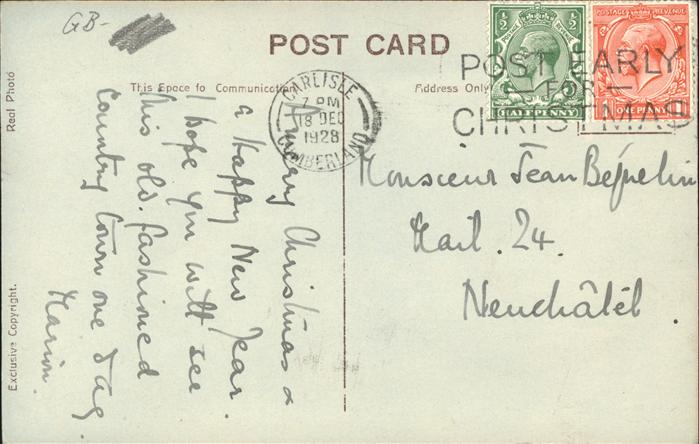 GB-
POST CARD
This Space fo Communication
Address Only
Real Photo
Exclusive Copyright.
CARLISLE
7 PM
18 DEC
1928
CUMBERLAND
POST EARLY
FOR
CHRISTMAS
HALF PENNY
POSTAGE REVENUE
ONE PENNY
A merry Christmas &
a Happy New Year.
I hope you will see
this old-fashioned
country town one day.
Marion
Monsieur Jean Béguelin
Mail. 24.
Neuchâtel